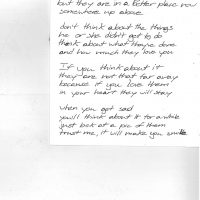 but they are in a better place now
somewhere up above
don't think about the things
he or she didn't get to do
think about what they've done
and how much they love you
If you think about it
they are not that far away
because if you love them
in your heart they will stay
when you get sad
you'll think about it for a while
just look at a pic of them
trust me, it will make you smile